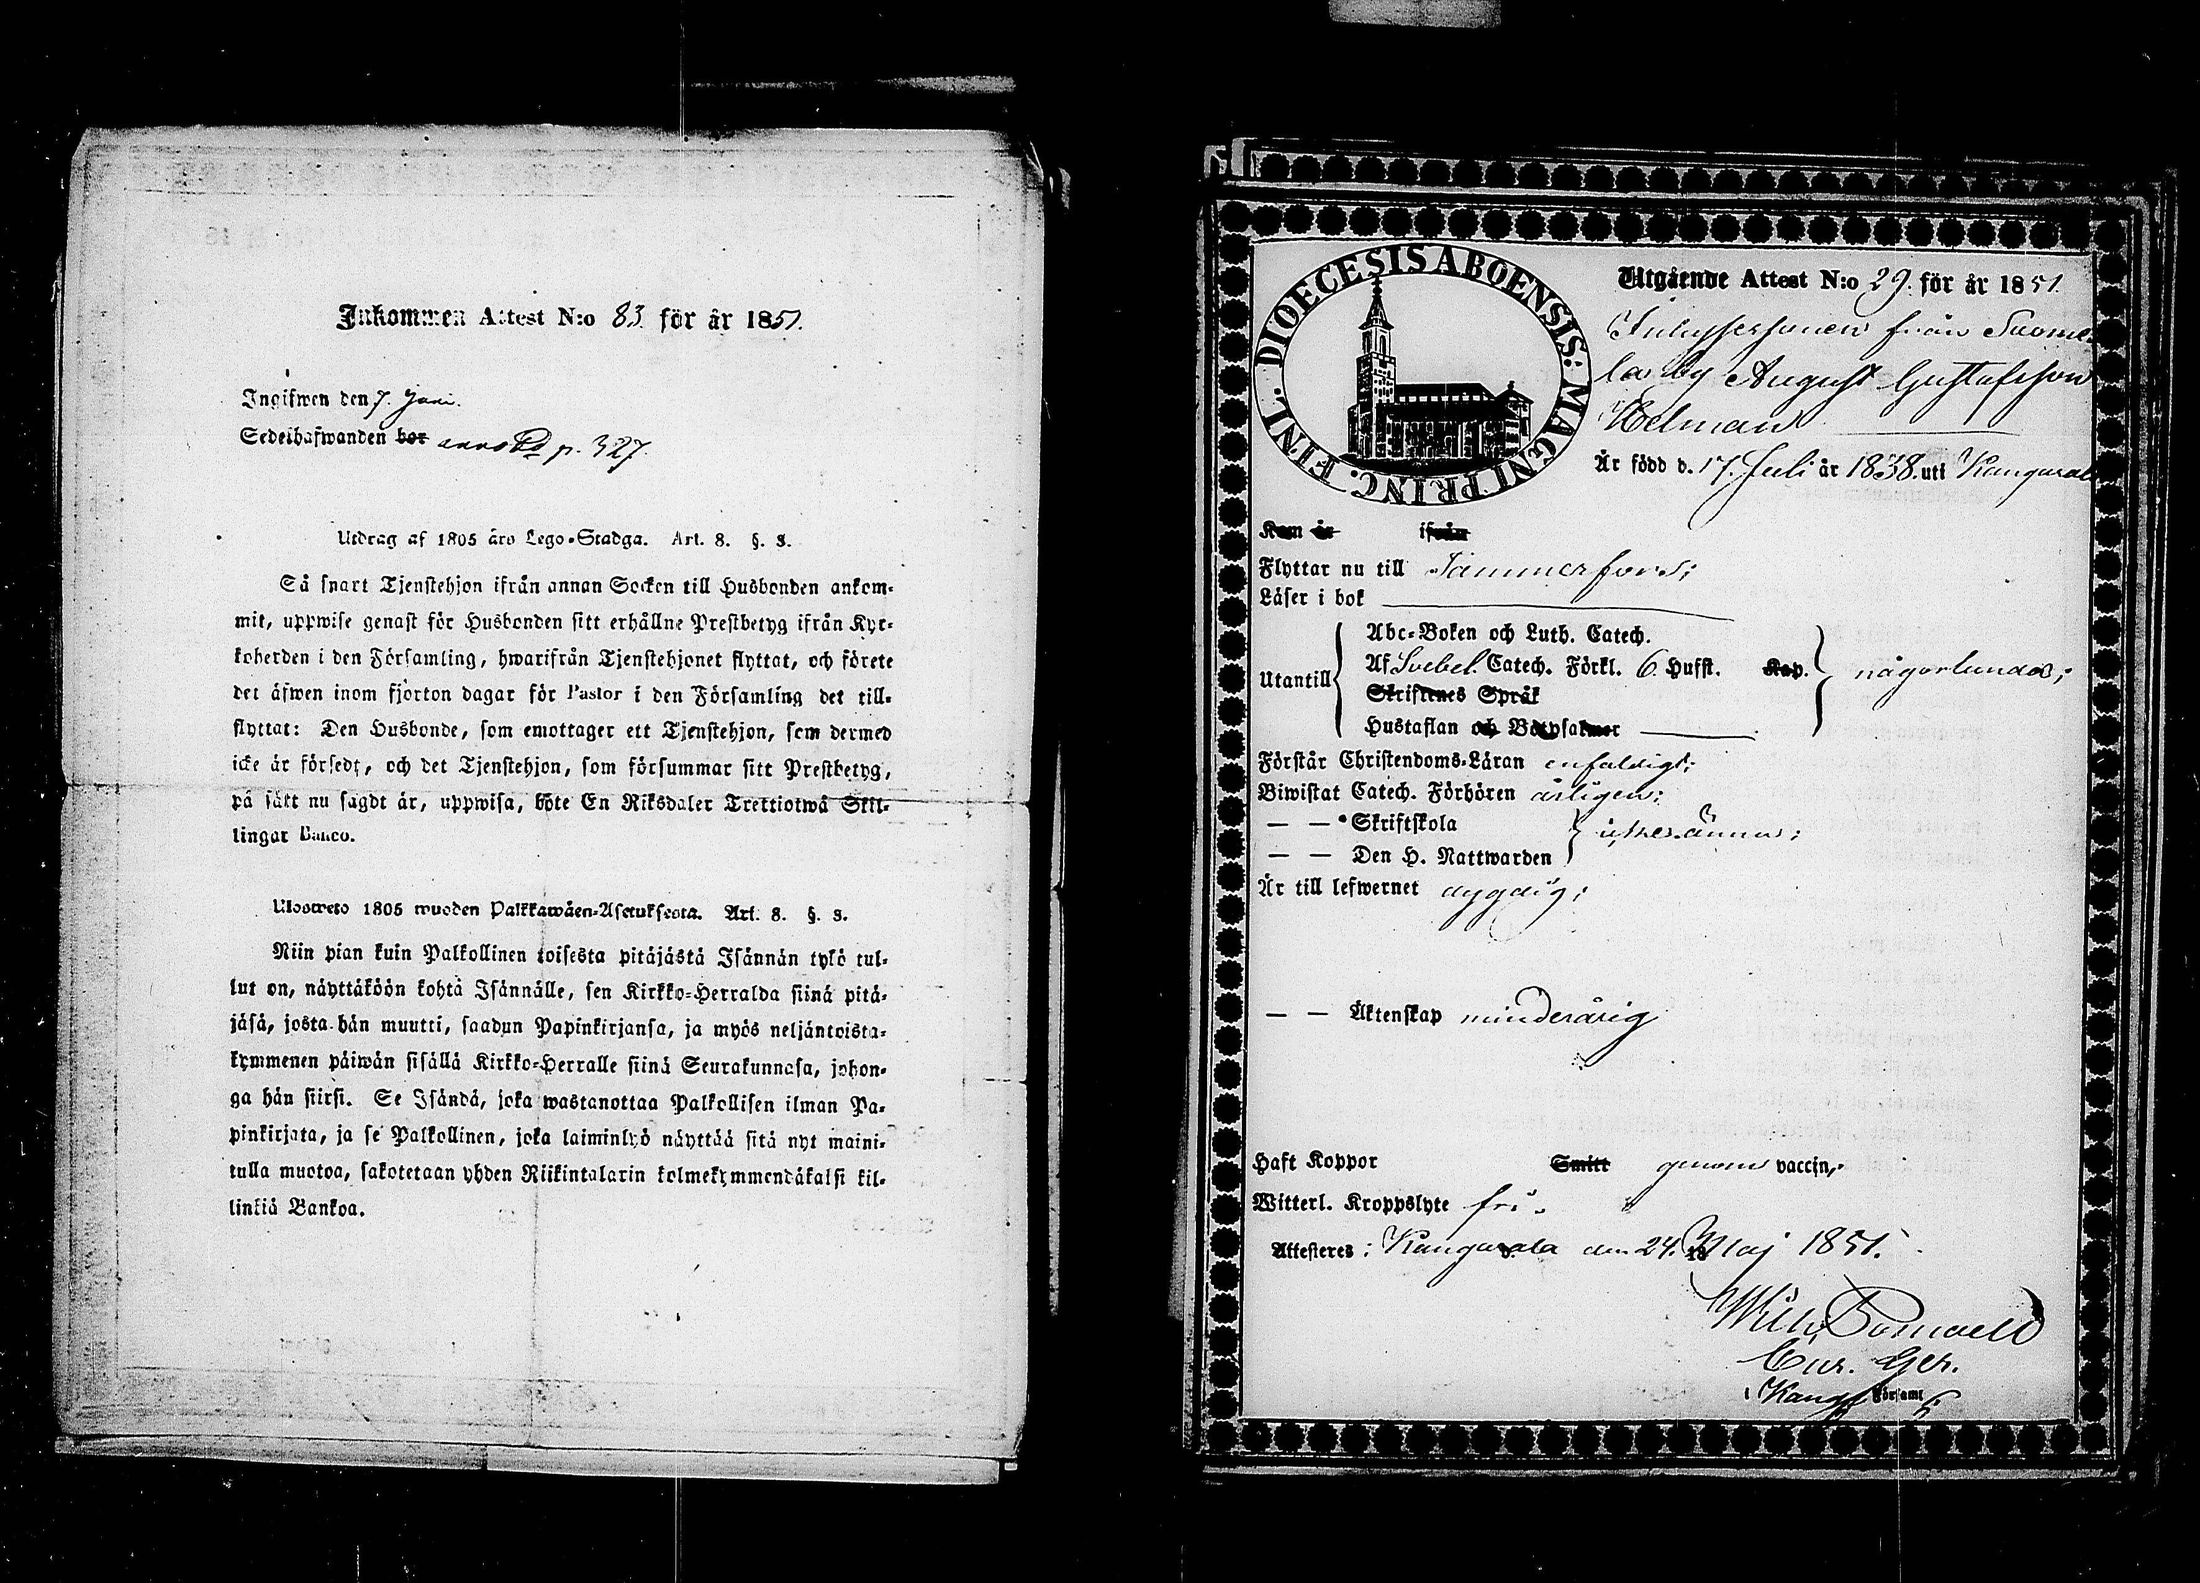 Inkommen Attest N:o 83 för år 1851.
Ingifwen den 7. Juni.
Sedelhafwanden bor annoted p. 327.
Utdrag af 1805 års Lego-Stadga. Art. 8. §. 3.
Så snart Tjenstehjon ifrån annan Socken till Husbonden ankom-
mit, uppwise genast för Husbonden sitt erhållne Prestbetyg ifrån Kyr-
koherden i den Församling, hwarifrån Tjenstehjonet flyttat, och förete
det äfwen inom fjorton dagar för Pastor i den Församling det till-
flyttat: Den Husbonde, som emottager ett Tjenstehjon, som dermed
icke är försedt, och det Tjenstehjon, som försummar sitt Prestbetyg,
på sätt nu sagdt är, uppwisa, böte En Riksdaler Trettiotwå Skil-
lingar Banco.
Ulosweto 1805 wuoden Palkkawäen-Asetuksesta. Art. 8. §. 3.
Niin pian kuin Palkollinen toisesta pitäjästä Isännän tykö tul-
lut on, näyttäköön kohta Isännälle, sen Kirkko-Herralda siinä pitä-
jäsä, josta hän muutti, saadun Papinkirjansa, ja myös neljäntoista-
kymmenen päiwän sisällä Kirkko-Herralle siinä Seurakunnasa, johon-
ga hän siirsi. Se Isändä, joka wastanottaa Palkollisen ilman Pa-
pinkirjata, ja se Palkollinen, joka laiminlyö näyttää sitä nyt maini-
tulla muotoa, sakotetaan yhden Riikintalarin kolmekymmendäkaksi kil-
linkiä Bankoa.
DIOECESIS ABOENSIS: MAGNI PRINC. FINL.
Utgående Attest N:o 29. för år 1851.
Inhysesonen från Suome-
la by August Gustafsson
Helman
Är född d. 17. Juli år 1838. uti Kangasala
Kom år ifrån
Flyttar nu till Tammerfors;
Läser i bok
Utantill
Abc-Boken och Luth. Catech.
Af Svebel. Catech. Förkl. 6. Hufst. Kap. någorlunda;
Skriftenes Språk
Hustaflan och Botpsalmer
Förstår Christendoms-Läran enfaldigt;
Biwistat Catech. Förhören årligen;
— — Skriftskola
— — Den H. Nattwarden icke ännu;
Är till lefwernet dygdig;
— — Äktenskap minderårig
Haft Koppor Smitt genom vaccin,
Witterl. Kroppslyte fri.
Attesteres: Kangasala den 24. Maj 1851.
Wilh.
Cur. Ger.
i Kang Församl